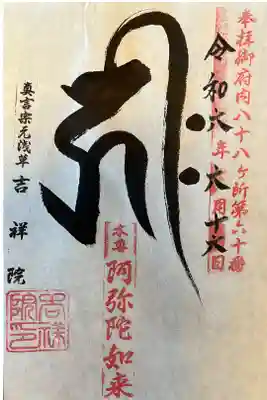 奉拝御府内八十八ヶ所第六十番
令和六年六月十六日
𑖮𑖿𑖨𑖱𑖾
本尊
阿弥陀如来
真言宗元浅草
吉祥院
吉祥院印